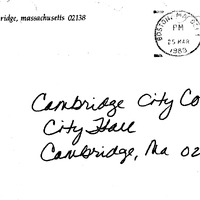 ridge, massachusetts 02138
BOSTON, MA
PM
25 MAR
1989
Cambridge City Co
City Hall
Cambridge, Ma 02